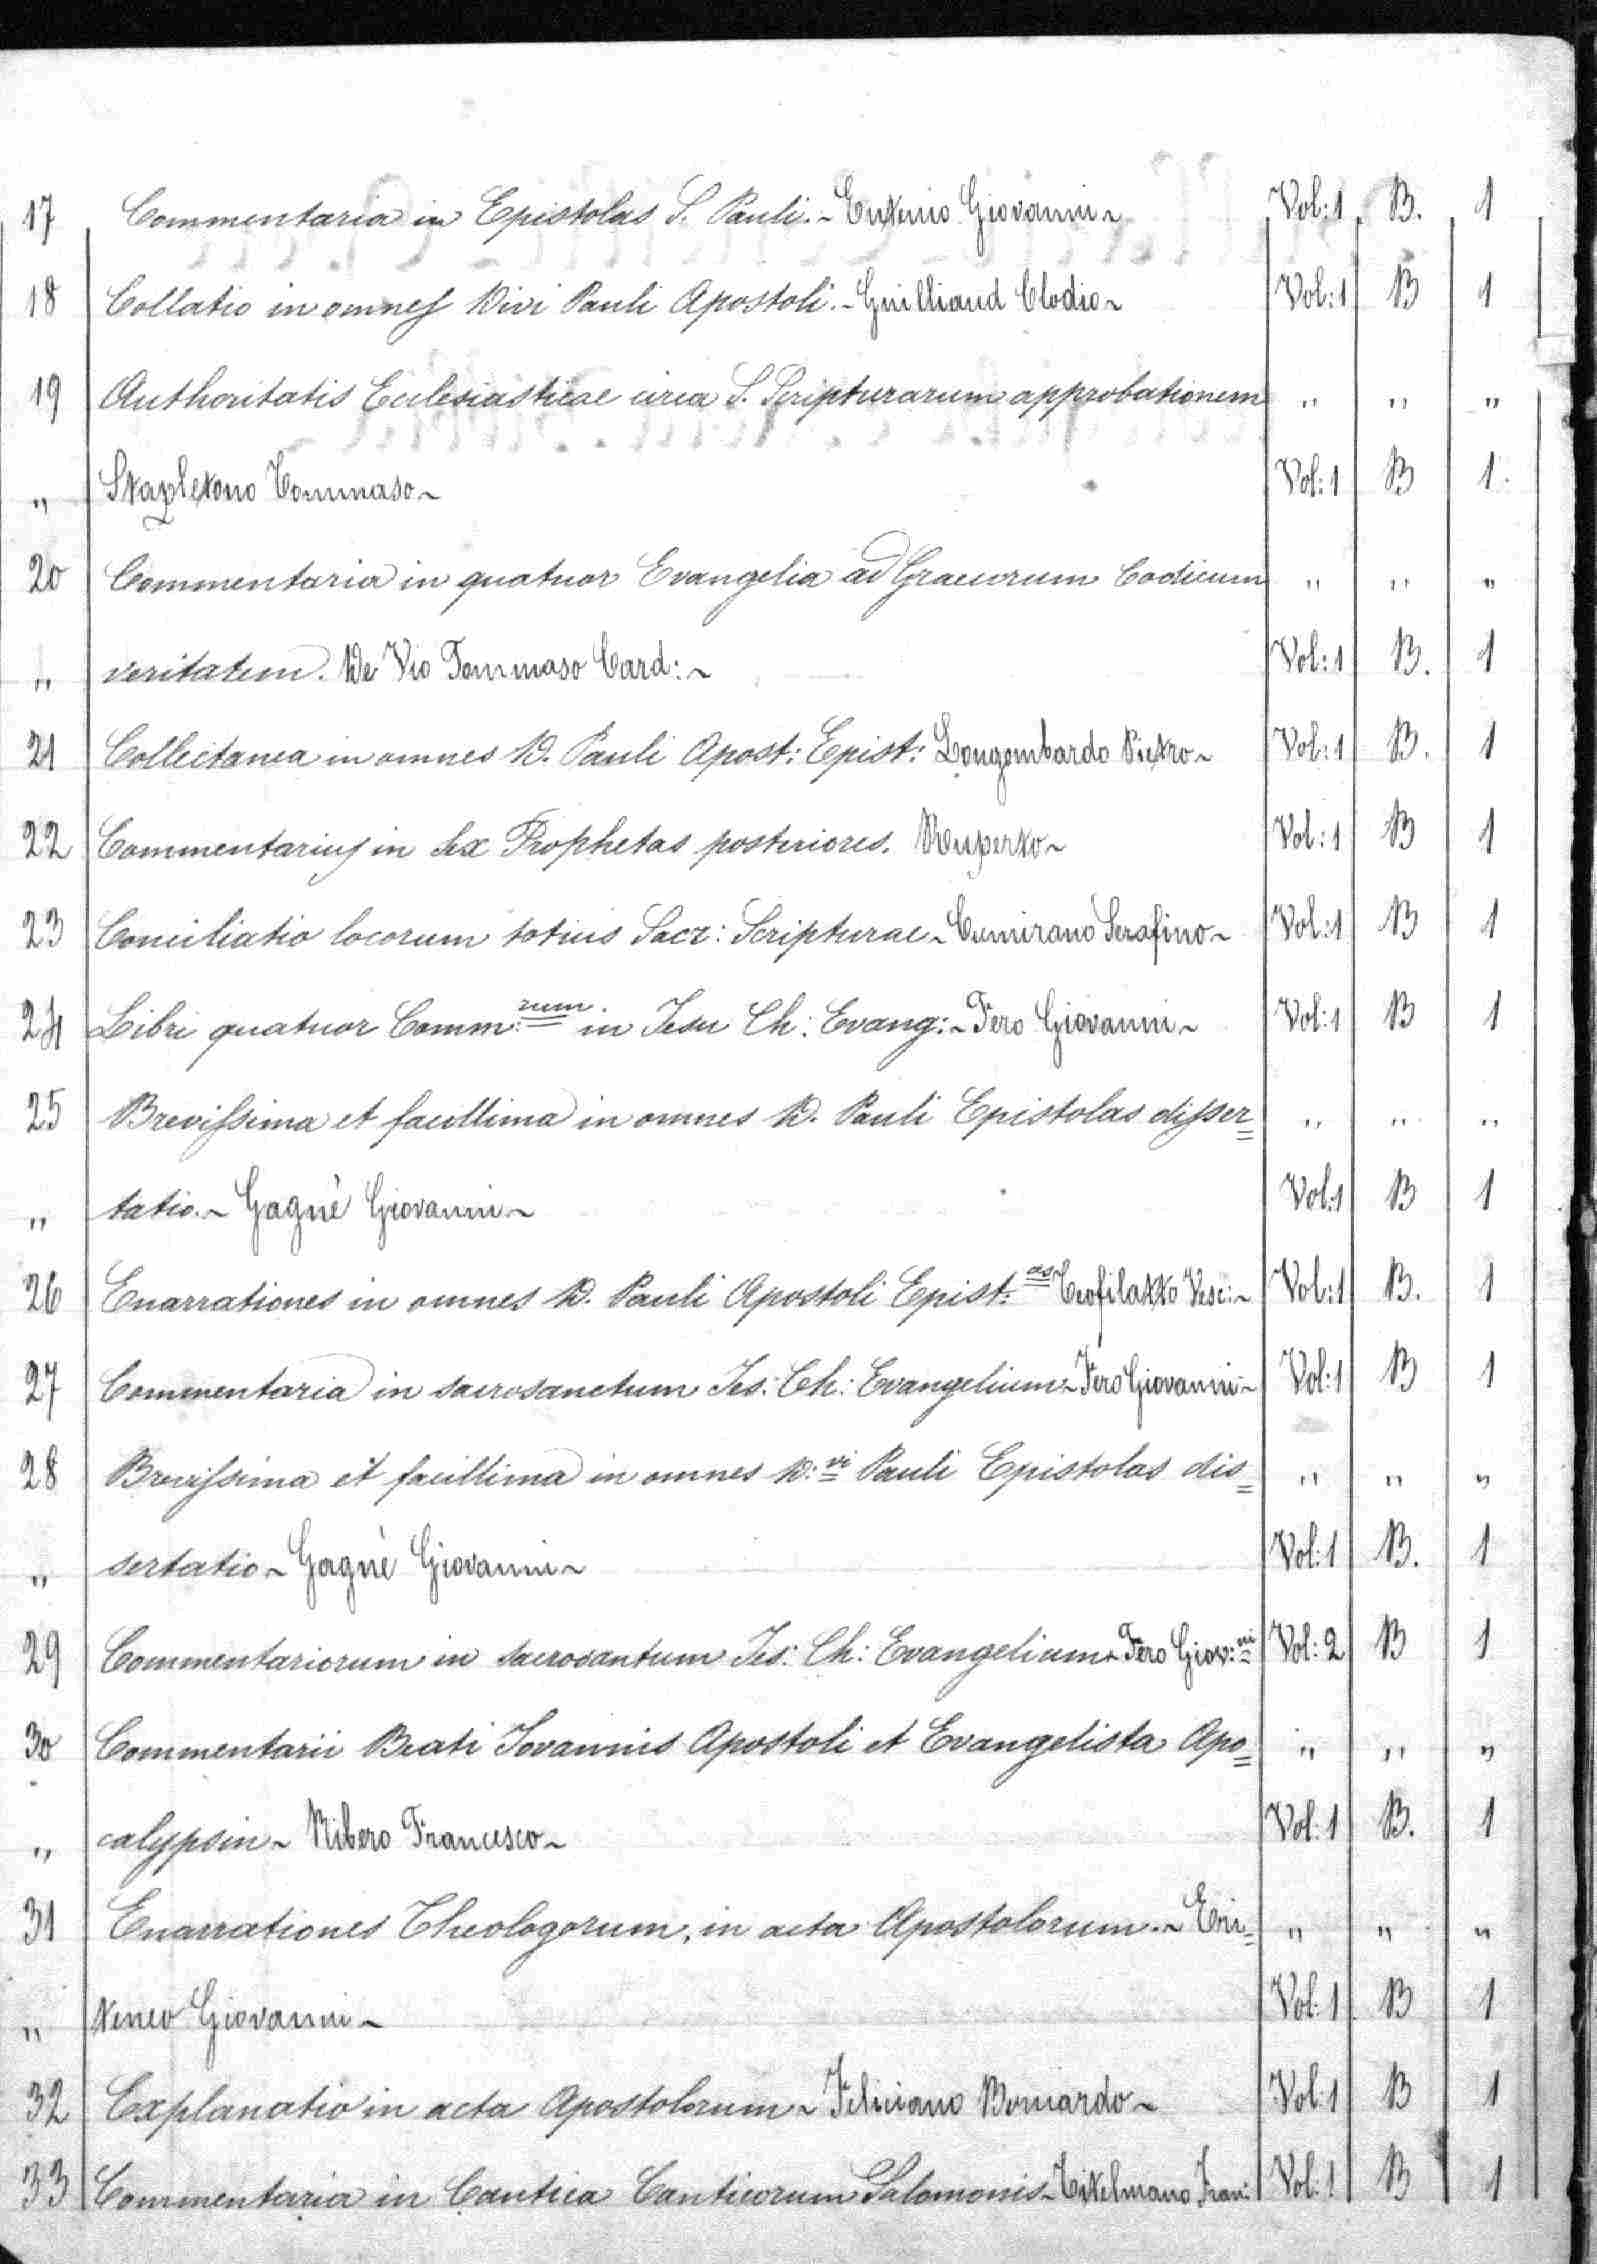 17 Commentaria in Epistolas S. Pauli. ~ Eutenio Giovanni ~ Vol: 1 B. 1
18 Collatio in omnes Divi Pauli Apostoli. ~ Guilliaud Clodio ~ Vol: 1 B 1
19 Authoritatis Ecclesiasticae circa S. Scripturarum approbationem " " "
" Stapletono Tommaso ~ Vol: 1 B 1.
20 Commentaria in quatuor Evangelia ad Graecorum Codicum " " "
" veritatem. De Vio Tommaso Card: ~ Vol: 1 B. 1
21 Collectanea in omnes D. Pauli Apost: Epist: Longombardo Pietro ~ Vol: 1 B. 1
22 Commentarius in sex Prophetas posteriores. Ruperto ~ Vol: 1 B 1
23 Conciliatio locorum totius Sacr: Scripturae ~ Cumirano Serafino ~ Vol: 1 B 1
24 Libri quatuor Comm:rum in Jesu Ch: Evang: ~ Fero Giovanni ~ Vol: 1 B 1
25 Brevissima et facillima in omnes D. Pauli Epistolas disser= " " "
" tatio. ~ Gagnè Giovanni ~ Vol: 1 B 1
26 Enarrationes in omnes D. Pauli Apostoli Epist:as Teofilatto Vesc: ~ Vol: 1 B. 1
27 Commentaria in sacrosanctum Jes: Ch: Evangelium ~ Fero Giovanni ~ Vol: 1 B 1
28 Brevissima et facillima in omnes D:vi Pauli Epistolas dis= " " "
" sertatio ~ Gagnè Giovanni ~ Vol: 1 B. 1
29 Commentariorum in sacrosantum Jes: Ch: Evangelium ~ Fero Giov:ni Vol: 2 B 1
30 Commentarii Beati Jovannis Apostoli et Evangelista Apo= " " "
" calypsin ~ Ribero Francesco ~ Vol: 1 B. 1
31 Enarrationes Theologorum, in acta Apostolorum. ~ Eri= " " "
" teneo Giovanni ~ Vol: 1 B 1
32 Explanatio in acta Apostolorum ~ Feliciano Bernardo ~ Vol: 1 B 1
33 Commentaria in Cantica Canticorum Salomonis ~ Titelmano Fran: Vol: 1 B 1